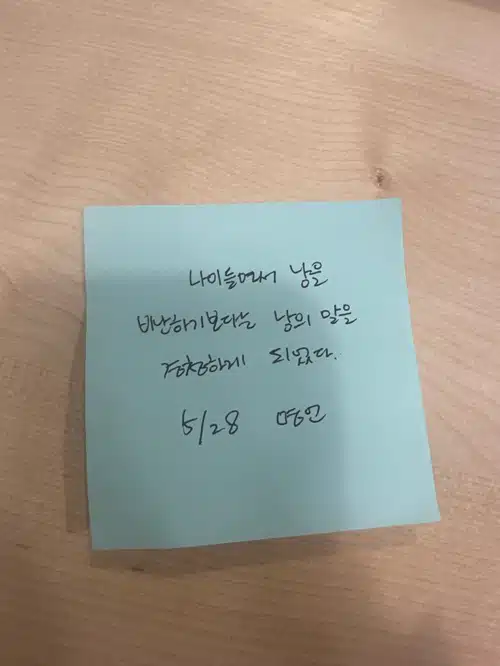 나이들면서 남을
비난하기보다는 남의 말을
경청하게 되었다.
5/28 명언